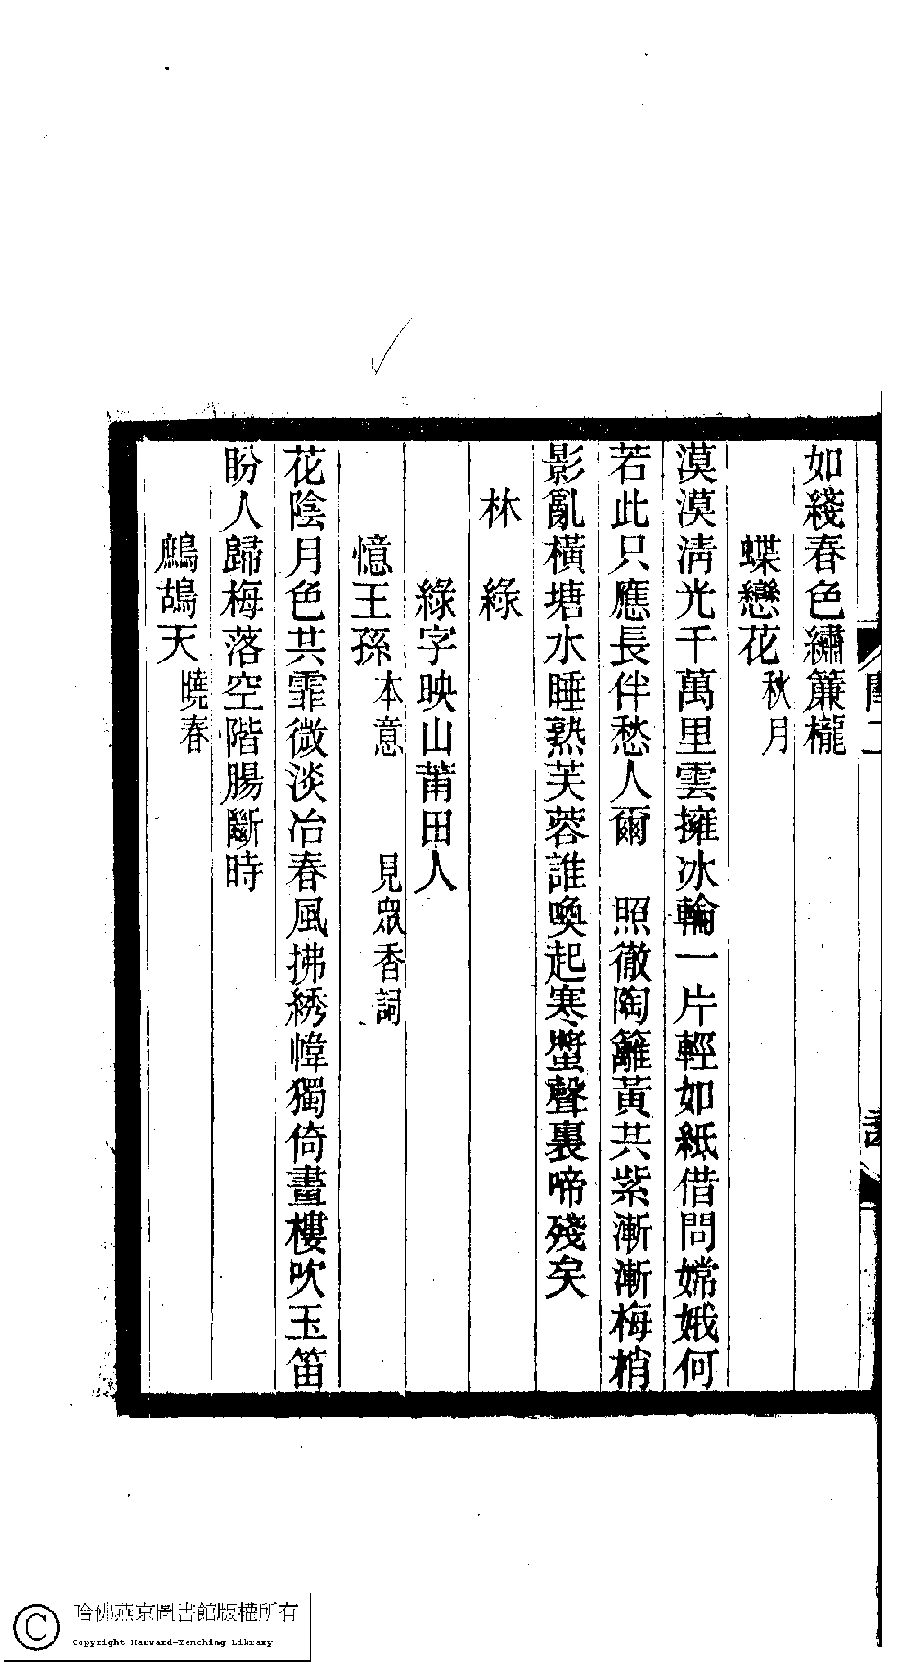 如綫春色繡簾櫳
蝶戀花 秋月
漠漠淸光千萬里雲擁冰輪一片輕如紙借問嫦娥何
若此只應長伴愁人爾　照徹陶籬黃共紫漸漸梅梢
影亂橫塘水睡熟芙蓉誰喚起寒螿聲裏啼殘矣
林　綠
綠字映山莆田人
憶王孫 本意　見眾香詞
花陰月色共霏微淡冶春風拂綉幃獨倚畫樓吹玉笛
盼人歸梅落空階腸斷時
鷓鴣天 曉春
哈佛燕京圖書館版權所有
Copyright Harvard-Yenching Library